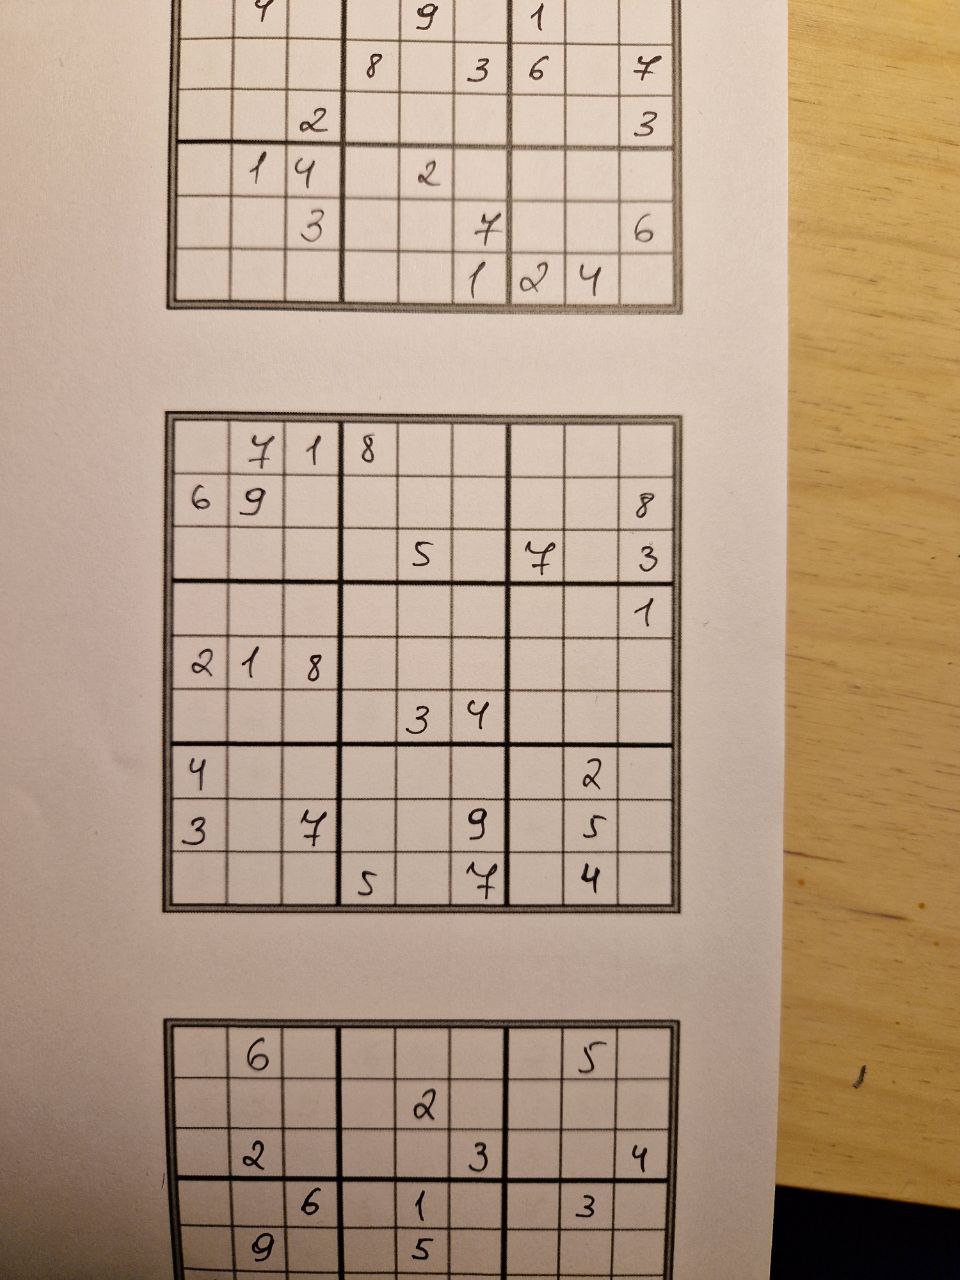 4 9 1
8 3 6 7
2 3
1 4 2
3 7 6
1 2 4
7 1 8
6 9 8
5 7 3
1
2 1 8
3 4
4 2
3 7 9 5
5 7 4
6 5
2
2 3 4
6 1 3
9 5